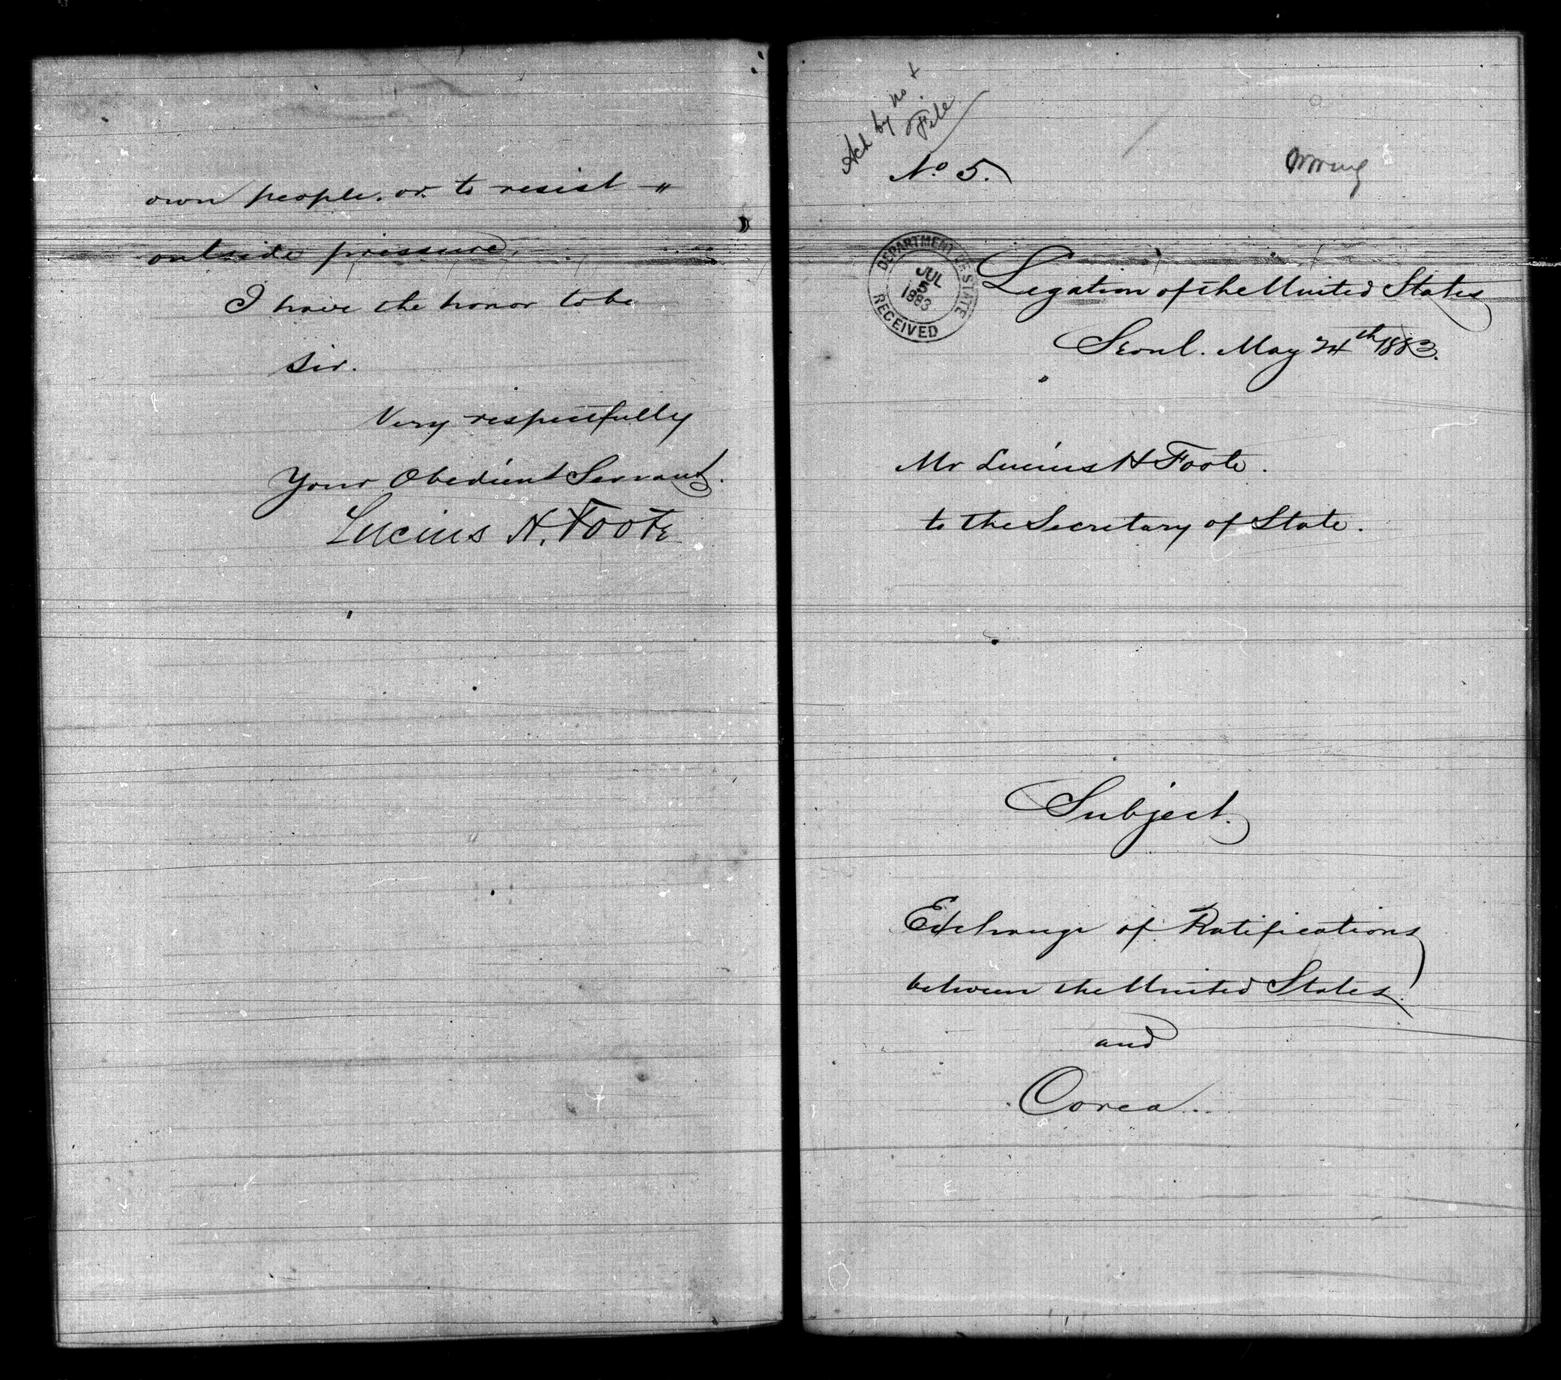 own people, or to resist
outside pressure.
I have the honor to be
Sir.
Very respectfully
Your Obedient Servant.
Lucius H. Foote
Ack by no &
File
No 5.
DEPARTMENT OF STATE
JUL
5
1883
RECEIVED
Legation of the United States
Seoul. May 24th 1883.
Mr Lucius H Foote.
to the Secretary of State.
Subject.
Exchange of Ratifications
between the United States
and
Corea